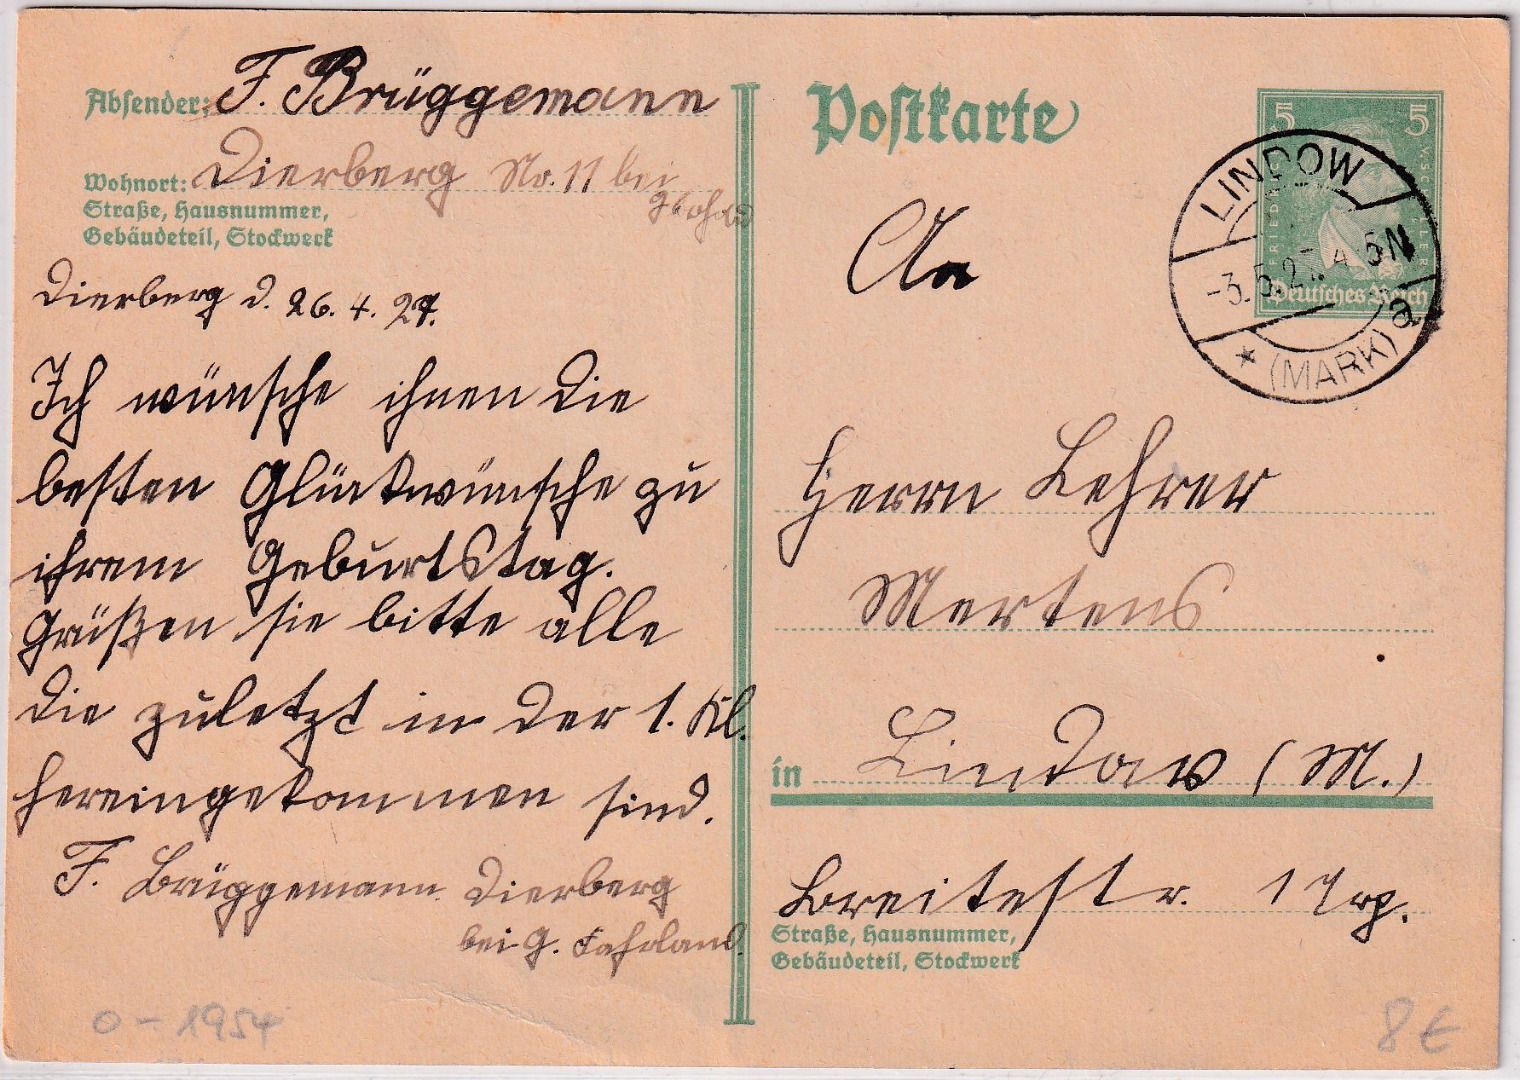 Absender: F. Brüggemann
Dierberg No. 11 bei
Wohnort:
Straße, Hausnummer,
Gebäudeteil, Stockwerk
Dierberg d. 26. 4. 27.
Ich wünsche ihnen die
besten Glückwünsche zu
ihrem Geburtstag.
Grüßen sie bitte alle
die zuletzt in der 1. Kl.
hereingekommen sind.
F. Brüggemann Dierberg
bei G. Fahrland.
Postkarte
5 5
Deutsches Reich
LINDOW
-3.5.27. 4-5N
* (MARK) a
An
Herrn Lehrer
Mertens
in Lindow (M.)
Breitestr. 1 Trp.
Straße, Hausnummer,
Gebäudeteil, Stockwerk
0-1954
8 €